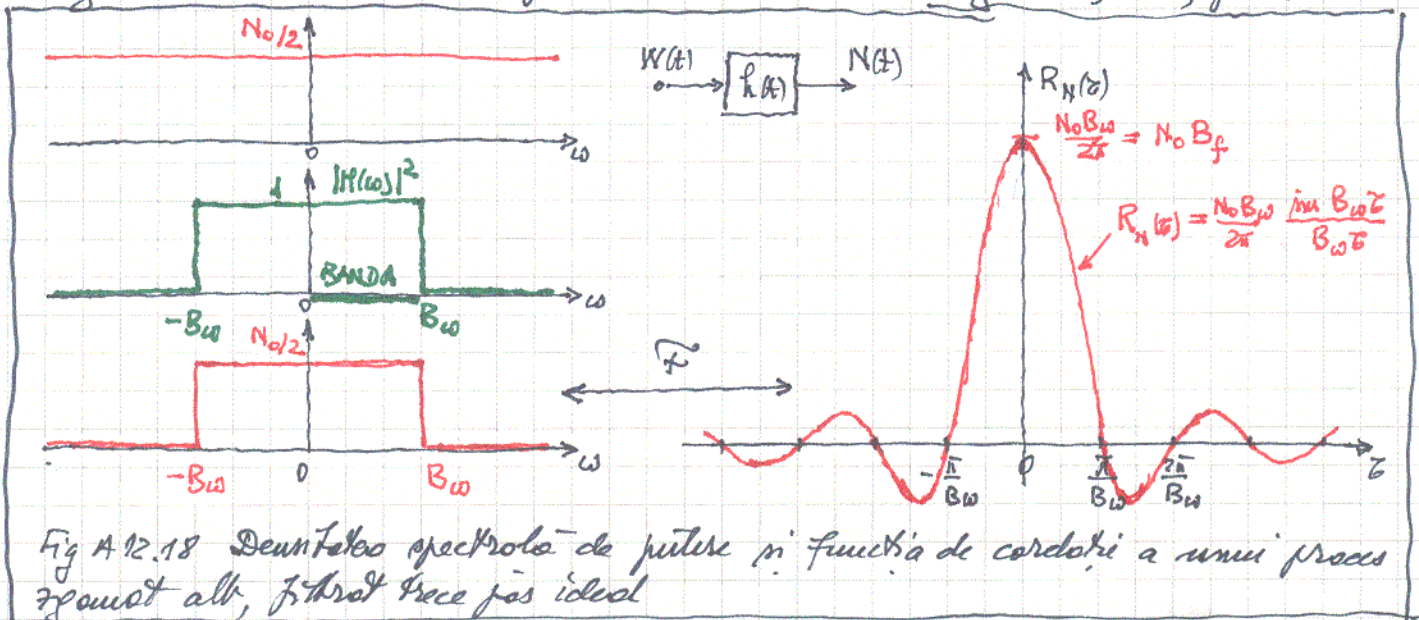 N₀/2
ω
0
W(t) h(t) N(t)
1 |H(ω)|²
BANDA
-B_ω 0 B_ω ω
N₀/2
-B_ω 0 B_ω ω
F
R_N(τ)
N₀B_ω/2π = N₀ B_f
R_N(τ) = N₀B_ω/2π sin B_ωτ/B_ωτ
-π/B_ω 0 π/B_ω 2π/B_ω τ
Fig A12.18 Densitatea spectrală de putere și funcția de corelație a unui proces
zgomot alb, filtrat trece jos ideal